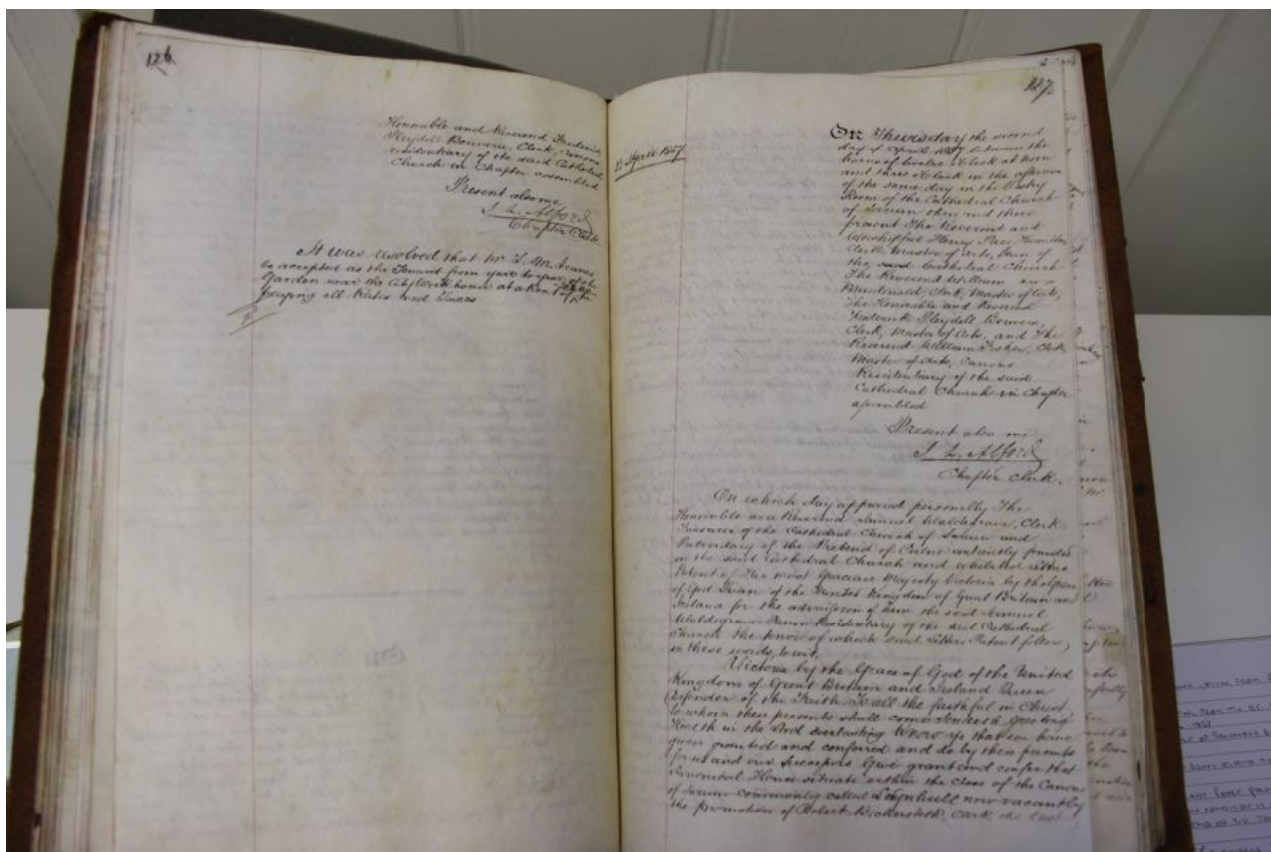 126
Honorable and Reverend Frederick
Pleydell Bouverie, Clerk, Canons
residentiary of the said Cathedral
Church in Chapter assembled
Present also me
Chapter Clerk
It was resolved that Mr
be accepted as the Tenant from year to year of the
Garden near the City Workhouse at a Rent of
paying all Rates and Taxes
127
2 April 1857
On Thursday the second
day of April 1857 between the
hours of twelve o'Clock at noon
and three o'Clock in the afternoon
of the same day in the Vestry
Room of the Cathedral Church
of Sarum then and there
present The Reverend and
Worshipful Henry Parr Hamilton
Clerk, Master of Arts, Dean of
the said Cathedral Church
The Reverend William
Macdonald, Clerk, Master of Arts,
The Honorable and Reverend
Frederick Pleydell Bouverie,
Clerk, Master of Arts, and The
Reverend William Fisher, Clerk
Master of Arts, Canons
Residentiary of the said
Cathedral Church in Chapter
assembled
Present also me
Alford
Chapter Clerk.
On which day appeared personally The
Honorable and Reverend Samuel Waldegrave, Clerk,
Treasurer of the Cathedral Church of Sarum and
Prebendary of the Prebend of Calne anciently founded
in the said Cathedral Church and exhibited Letters
Patent of Her most Gracious Majesty Victoria by the Grace
of God Queen of the United Kingdom of Great Britain and
Ireland for the admission of him the said Samuel
Waldegrave Canon Residentiary of the said Cathedral
Church the tenor of which said Letters Patent follow,
in these words, to wit,
Victoria by the Grace of God of the United
Kingdom of Great Britain and Ireland Queen
Defender of the Faith To all the faithful in Christ
to whom these presents shall come Sendeth greeting
Health in the Lord everlasting Know ye that we have
given granted and conferred and do by these presents
for us and our Successors Give grant and confer that
Canonical House situate within the Close of the Canons
of Sarum commonly called now vacant by
the promotion of Robert Bickersteth, Clerk the last